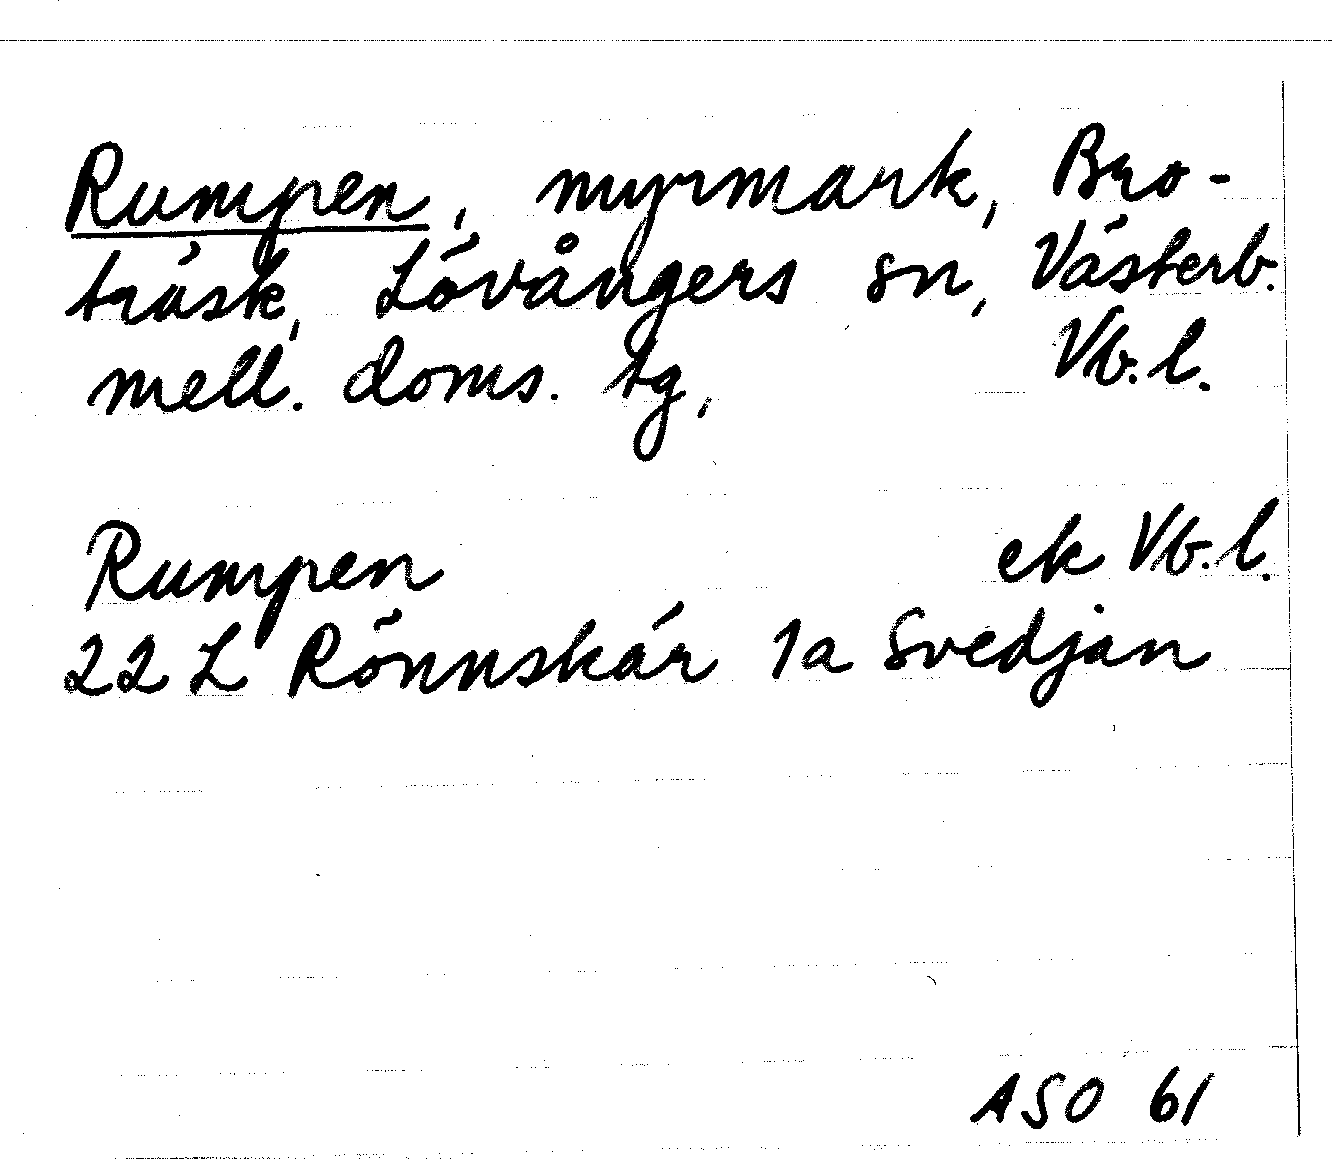 Rumpen, myrmark, Bro-
träsk, Lövångers sn, Västerb.
mell. doms. tg, Vb. l.
Rumpen ek Vb. l.
22 L Rönnskär 1a Svedjan
ASO 61